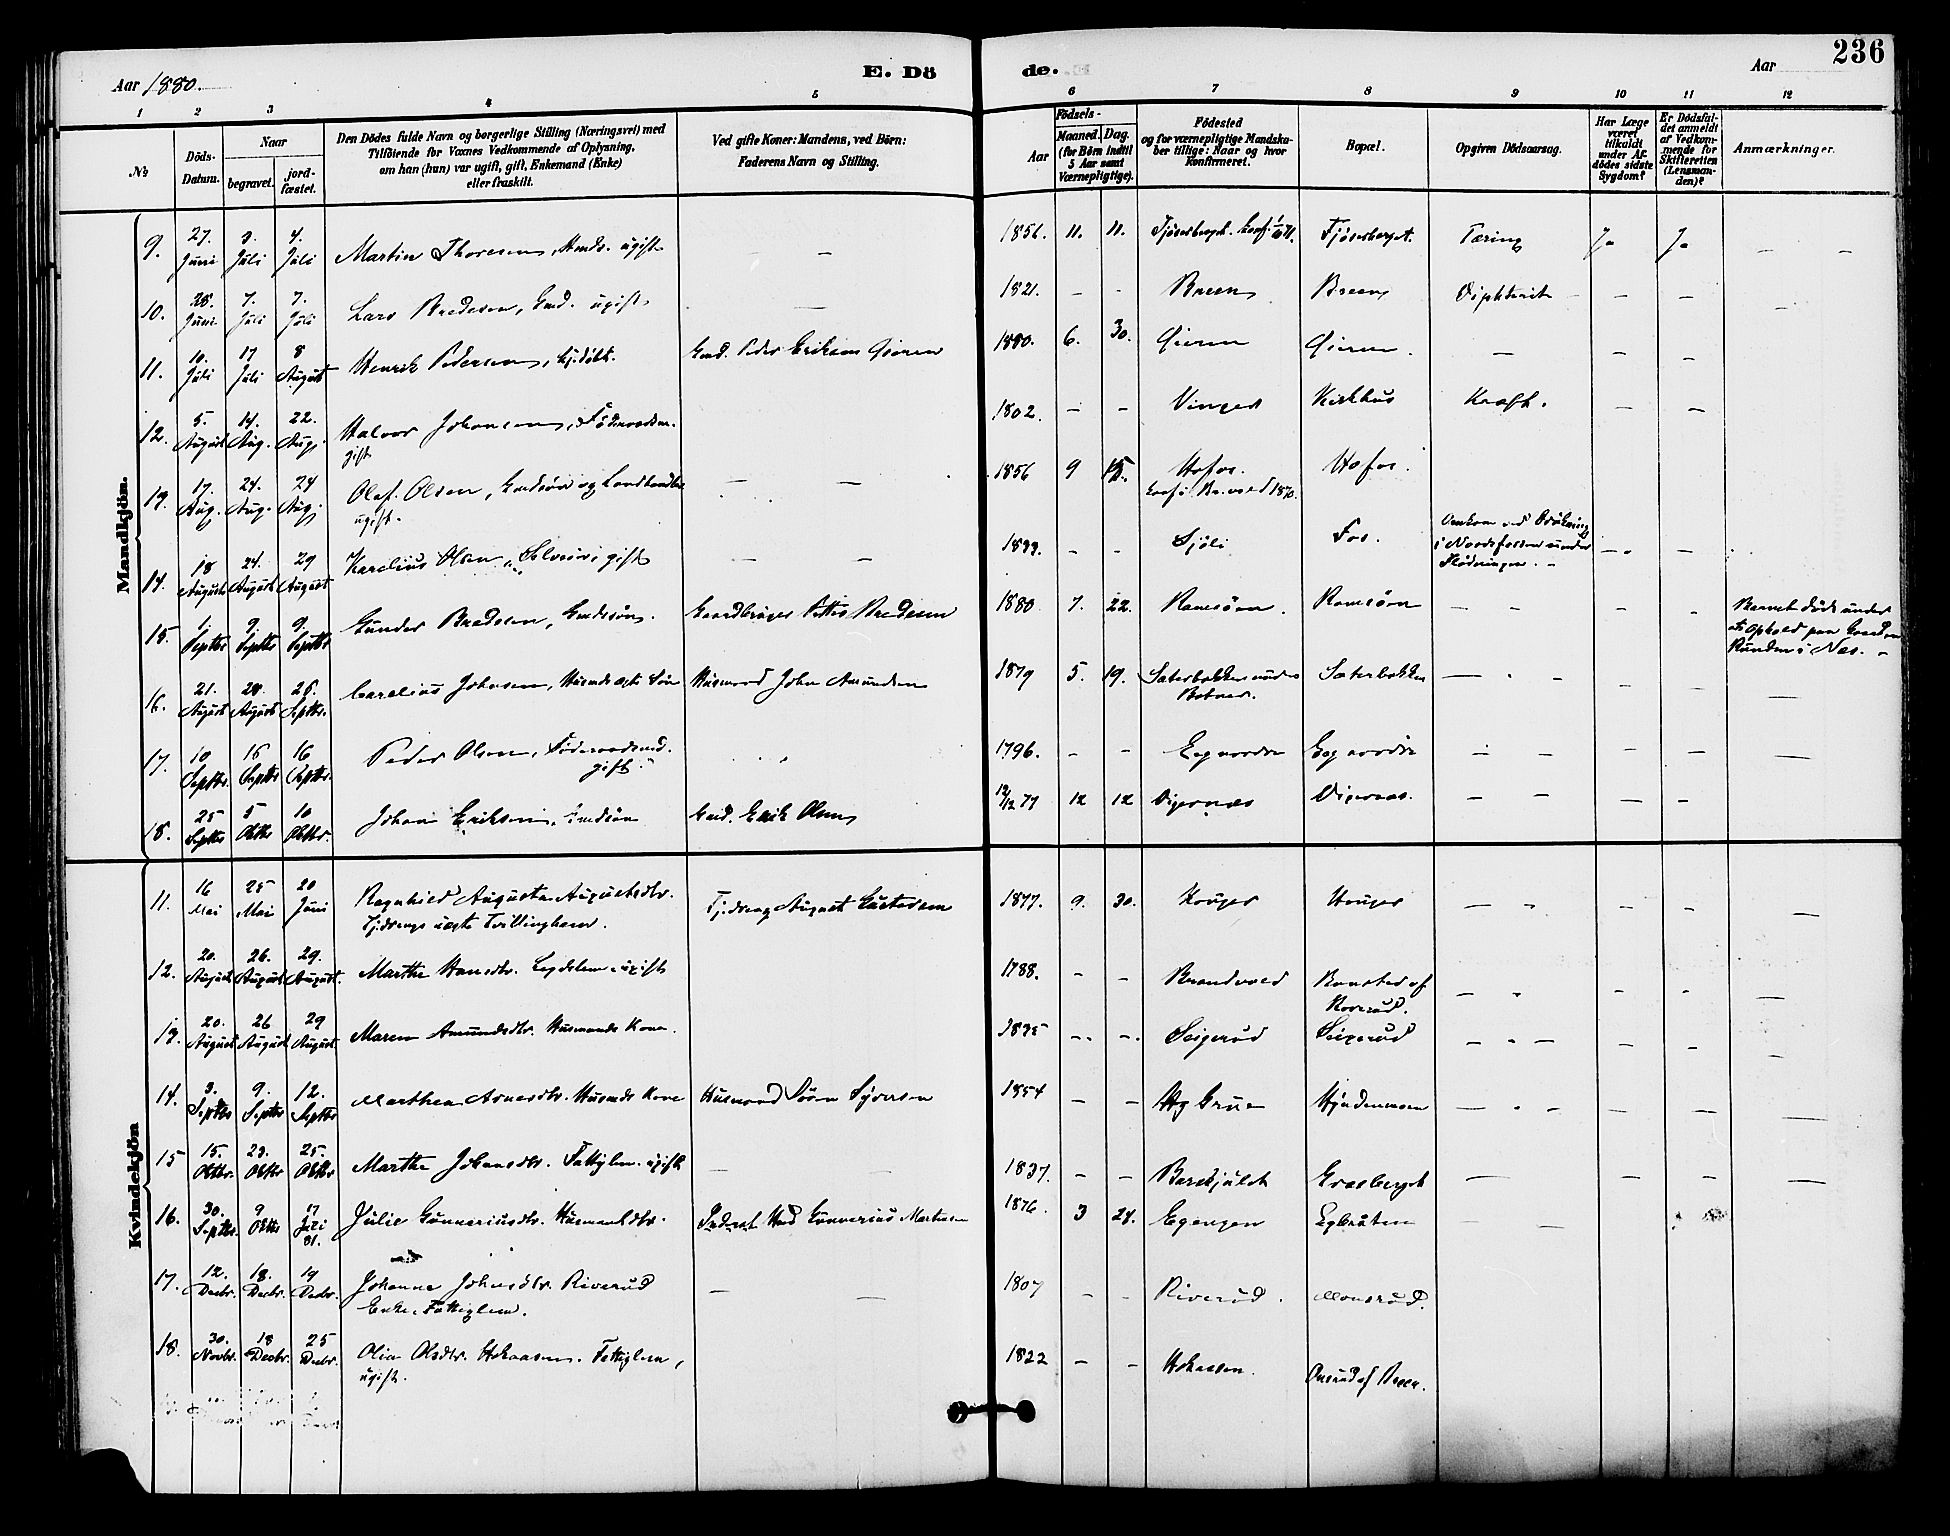 236
Aar 1880.
E. Dö
de.
Aar
1 2 3 4 5 6 7 8 9 10 11 12
No
Döds-Datum.
Naar
begravet.
jord-fæstet.
Den Dödes fulde Navn og borgerlige Stilling (Næringsvei) med
Tilföiende for Voxnes Vedkommende af Oplysning,
om han (hun) var ugift, gift, Enkemand (Enke)
eller fraskilt.
Ved gifte Koner: Mandens, ved Börn:
Faderens Navn og Stilling.
Aar
Födsels-
Maaned. Dag.
(for Börn indtil
5 Aar samt
Værnepligtige).
Födested
og for værnepligtige Mandska-
ber tillige: Naar og hvor
konfirmeret.
Bopæl.
Opgiven Dödsaarsag.
Har Læge
været
tilkaldt
under Af-
dödes sidste
Sygdom?
Er Dödsfal-
det anmeldt
af Vedkom-
mende for
Skifteretten
(Lensman-
den)?
Anmærkninger.
Mandkjön.
9. 27. Juni 3. Juli 4. Juli Martin Thoresen, ugift — — 1856. 11. 11. Fjöserberget. Tæring Ja Ja — —
10. 28. Juni 7. Juli 7. Juli Lars Bredesen, Gmd. ugift — 1821. — — Breen Breen Diphterit — — — —
11. 10. Juli 17 Juli 8 August Henrik Pedersen, Gmd. Peder Eriksen Gieren 1880. 6. 30. Gieren Gieren. — — —
12. 5. August 14. Aug. 22. Aug. Halvor Johansen, Föderaadsm.
gift 1802. — — Vinger Kirkhus Kræft. — —
13. 17. Aug. 24. Aug. 24 Aug. Olaf Olsen, Gmdsön og Landhandler
ugift. — — 1856 9 15. Hofos. Hofos.
14. 18 August 24. August 29 August Karelius Olsen, Selveier, gift — — — — Sjöli Fos. Omkom ved Drukning
i Noresfossen under
Flödningen. — — —
15. 1. Septbr 9. Septbr 9. Septbr Gunder Bredesen, Gmdssön. Gaardbruger Petter Bredesen 1880 7. 22. Ramsöen. Ramsöen — — — — Barnet döde under
et Ophold paa
Runden i Næs. —
16. 21. August 28. August 26. Septbr. Carelius Johnsen, Husmds ægte Sön Husmand John Amundsen 1879 5. 19. Sæterbakken under
Botner. Sæterbakken — — — — — —
17. 10 Septbr. 16 Septbr. 16 Septbr. Peder Olsen, Föderaadsmd.
gift. 1796. — — — — — — —
18. 25 Septbr 5 Oktbr 10 Oktbr. Johan Eriksen, Gmdsön Gmd. Erik Olsen 12/12 79 12 12 Digernæs Digernæs. — — — —
Kvindekjön
11. 16 Mai 25 Mai 20 Juni Ragnhild Augusta Augustsdtr.
Tjdrengs ægte Tvillingbarn. Tjdreng August Gustavsen 1877. 9. 30. Houger Houger — — — — —
12. 20. August 26. August 29. August. Marthe Hansdtr. Legdslem, ugift 1788. — — Brandvold af
Roverud. — — — — —
13. 20. August 26 August 29 August Maren Amundsdtr. Husmands Kone. 1835 — — Seigerud Seigerud — — — — — —
14. 3. Septbr 9. Septbr 12. Septbr Marthea Arnesdtr. Husmds Kone Husmand Sören Syversen 1854 — — Hg Grue — — — — — —
15 15. Oktbr. 23. Oktbr 25. Oktbr Marthe Johansdtr. Fattiglem. ugift — — 1837. — — Grasberget — — — —
16. 30. Septbr. 9 Oktbr 17 Juli 81. Julie Gunneriusdtr. Husmandsdtr. Gunnerius Martinsen 1876. 3 24. Egengen — —
17. 12. Decbr. 18. Decbr. 19 Decbr. Johanne Johnsdtr. Riverud
Enke. Fattiglem. — — 1807 — — Riverud. Monsrud.
18. 30. Novbr. 18 Decbr. 25 Decbr. Olia Olsdtr. Hokaasen. Fattiglem,
ugift. 1822 — — Hokaasen. af Breen.